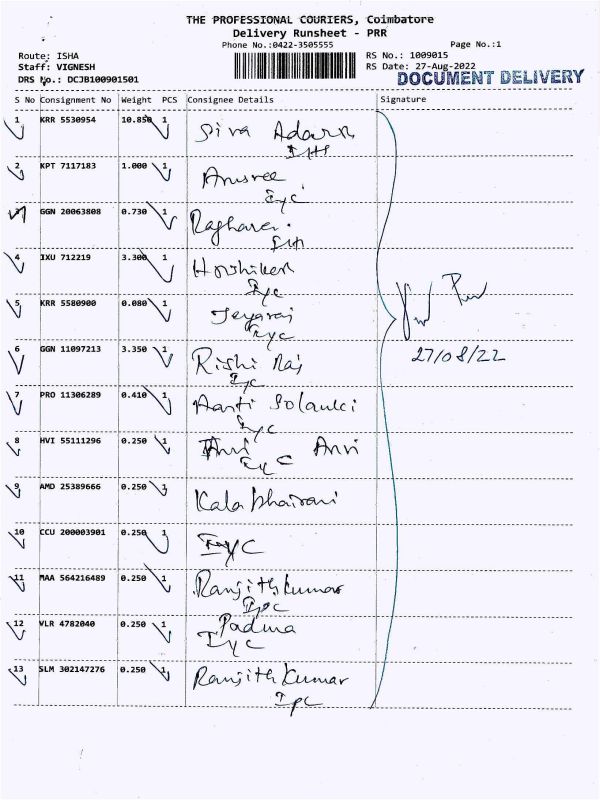 THE PROFESSIONAL COURIERS, Coimbatore
Delivery Runsheet - PRR
Phone No.:0422-3505555
Page No.:1
Route: ISHA
RS No.: 1009015
Staff: VIGNESH
RS Date: 27-Aug-2022
DRS No.: DCJB100901501
DOCUMENT DELIVERY
S No Consignment No Weight PCS Consignee Details Signature
1 KRR 5530954 10.850 1 Siva Adarsh
2 KPT 7117183 1.000 1 Anusree
Iyc
3 GGN 20063808 0.730 1 Raghaven
4 IXU 712219 3.300 1
Iyc
5 KRR 5580900 0.080 1 Jeyaraj
Iyc
6 GGN 11097213 3.350 1 Rishi Raj
Iyc
7 PRO 11306289 0.410 1 Aarti Solanki
Iyc
8 HVI 55111296 0.250 1 Anvi
Iyc
9 AMD 25389666 0.250 1 Kala bhairavi
10 CCU 200003901 0.250 1 IYC
11 MAA 564216489 0.250 1 Ranjithkumar
12 VLR 4782040 0.250 1 Padma
IYC
13 SLM 302147276 0.250 1 Ranjith Kumar
Iyc
27/08/22